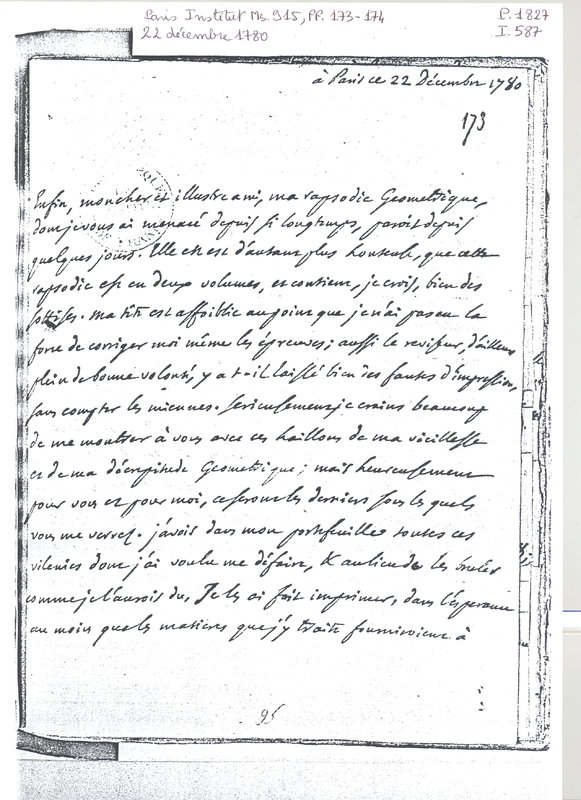 Paris Institut Ms. 915, PP. 173-174
22 décembre 1780
P. 1827
I. 587
à Paris ce 22 Décembre 1780
173
Enfin, mon cher et illustre ami, ma rapsodie Geometrique,
dont je vous ai menacé depuis si longtemps, paroit depuis
quelques jours. Elle est d'autant plus honteuse, que cette
rapsodie est en deux volumes, et contient, je crois, bien des
sottises. ma tête est affoiblie au point que je n'ai pas eu la
force de corriger moi même les épreuves; aussi le reviseur, d'ailleurs
plein de bonne volonté, y a t-il laissé bien des fautes d'impression,
sans compter les miennes. serieusement je crains beaucoup
de me montrer à vous avec ces haillons de ma vieillesse
et de ma décrepitude Geometrique; mais heureusement
pour vous et pour moi, ce seront les derniers sous les quels
vous me verrez. j'avois dans mon portefeuille toutes ces
vilenies dont j'ai voulu me défaire, & au lieu de les bruler
comme je l'aurois du, Je les ai fait imprimer, dans l'esperance
au moins que les matieres que j'y traite fourniroient à
95